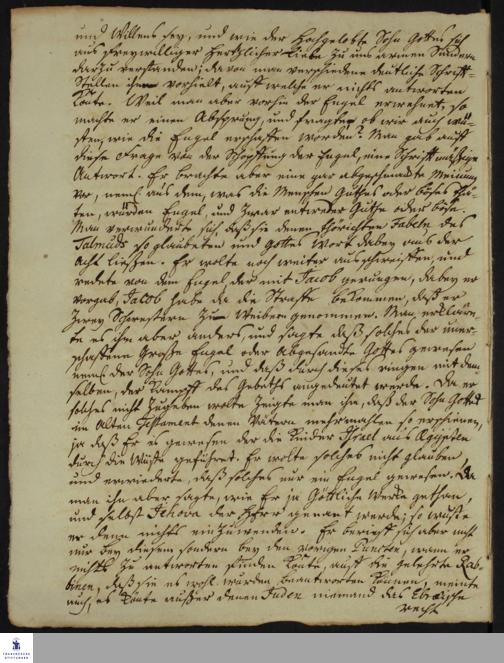 und Willens sey, und wie der Hochgelobte Sohn Gottes sich
aus freywilliger hertzlicher Liebe zu uns armen Sündern
darzu verstanden; davon man verschiedene deutliche Schrifft-
Stellen ihm vorhielt, auff welche er nichts antworten
Konte. Weil man aber vorhin der Engel erwehnet, so
machte er einen Absprung, und fragte, ob wir auch wü-
sten, wie die Engel erschaffen worden? Man gab auff
diese Frage von der Schöpffung der Engel, eine Schrifftmäßige
Antwort. Er brachte aber eine gar abgeschmackte Meinung
vor, neml. aus dem, was die Menschen Guthes oder böses thä-
ten, würden Engel, und zwar entweder Guthe oder böse.
Man verwunderte sich, daß sie denen thörichten Fabeln des
Talmuds so glaubeten und Gottes Wort dabey aus der
Acht ließen. Er wolte noch weiter ausschweiffen und
redete von dem Engel, der mit Jacob gerungen, dabey er
vorgab, Jacob habe da die Straffe bekommen, daß er
Zwey Schwestern zu Weibern genommen. Man erklär-
te es ihm aber anders, und sagte daß solches der uner-
schaffene Große Engel oder Abgesandte Gottes gewesen
neml. der Sohn Gottes, und daß durch dieses ringen mit dem-
selben, der Kampff des Gebeths angedeutet werde. Da er
solches nicht zugeben wolte zeigte man ihm, daß der Sohn Gottes
im Alten Testament denen Vätern mehrmahlen so erschienen,
ja daß Er es gewesen der die Kinder Israel aus Egypten
durch die Wüste geführet. Er wolte solches nicht glauben,
und erwiederte, daß solches nur ein Engel gewesen. Da
man ihm aber sagte, wie Er ja Göttliche Wercke gethan,
und selbst Jehova der Herr genant werde; so wuste
er denn nichts einzuwenden. Er berieff sich aber nicht
nur bey diesem sondern bey den vorigen Puncten, wann er
nichts zu antworten finden konte, auff die gelehrte Rab-
binen, daß sie es wohl würden beantworten können, meinte
auch, es könte außer denen Juden niemand das Ebräische
recht
FRANCKESCHE
STIFTUNGEN